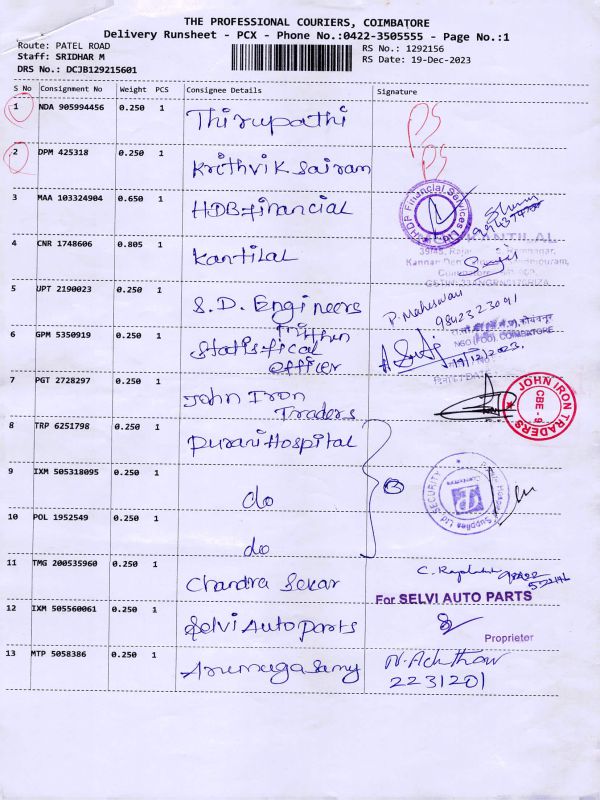 THE PROFESSIONAL COURIERS, COIMBATORE
Delivery Runsheet - PCX - Phone No.:0422-3505555 - Page No.:1
Route: PATEL ROAD
RS No.: 1292156
Staff: SRIDHAR M
RS Date: 19-Dec-2023
DRS No.: DCJB129215601
S No Consignment No Weight PCS Consignee Details Signature
1 NDA 905994456 0.250 1 Thirupathi
PS
2 DPM 425318 0.250 1 Krithvik Sairam
PS
3 MAA 103324904 0.650 1 HDB financial
HDP Financial Services Ltd
4 CNR 1748606 0.805 1 Kantilal
5 UPT 2190023 0.250 1 S.D. Engineers P. Maheswari
9842323041
6 GPM 5350919 0.250 1 Statistical
officer
19/12/2023
7 PGT 2728297 0.250 1 John Iron
Traders
JOHN IRON TRADERS CBE - 9
8 TRP 6251798 0.250 1 Purani Hospital
9 IXM 505318095 0.250 1 do
3
Supplies Ltd SECURITY
10 POL 1952549 0.250 1 do
11 TMG 200535960 0.250 1 Chandra Sekar
For SELVI AUTO PARTS
12 IXM 505560061 0.250 1 Selvi Auto parts
Proprietor
13 MTP 5058386 0.250 1 Arumugasamy
2231201